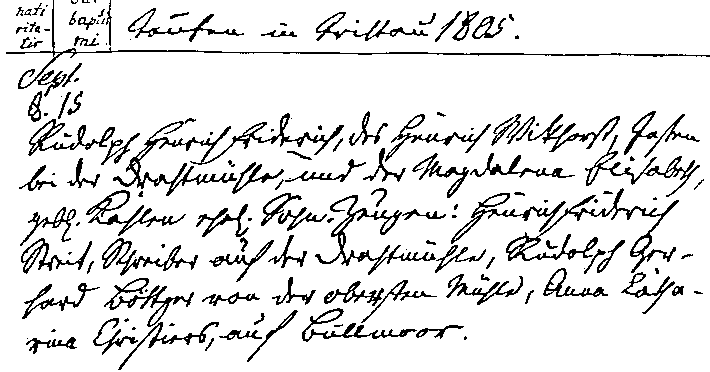 nati
rita-
tis
bapti
mi
Taufen in Trittau 1805.
Sept.
8. 15
Rudolph Henrich Friderich, des Henrich Wikhorst, Insten
bei der Drahtmühle, und der Magdalena Elisabeth,
gebh. Kahlen ehel. Sohn. Zeugen: Henrich Friderich
Streit, Schreiber auf der Drahtmühle, Rudolph Ger-
hard Böttger von der obersten Mühle, Anna Catha-
rina Christiers, auf Bullmoor.